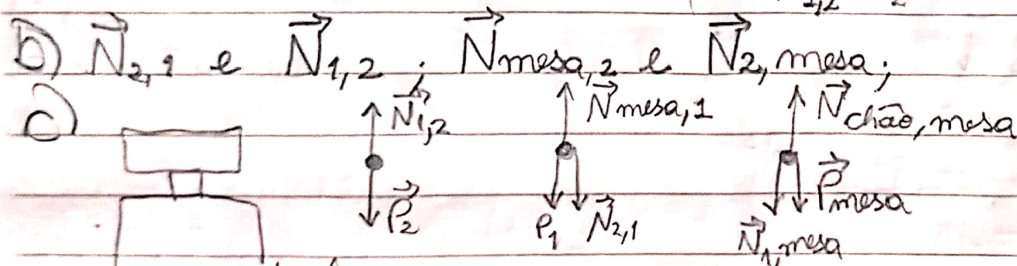 b) N⃗2,1 e N⃗1,2 ; N⃗mesa,2 e N⃗2,mesa;
c)
N⃗1,2
P⃗2
N⃗mesa,1
P1 N⃗2,1
N⃗chão,mesa
P⃗mesa
N⃗1,mesa